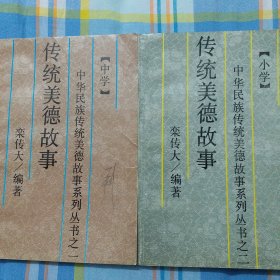 【中学】
中华民族传统美德故事系列丛书之二
传统美德故事
栾传大／编著
【小学】
中华民族传统美德故事系列丛书之二
传统美德故事
栾传大／编著